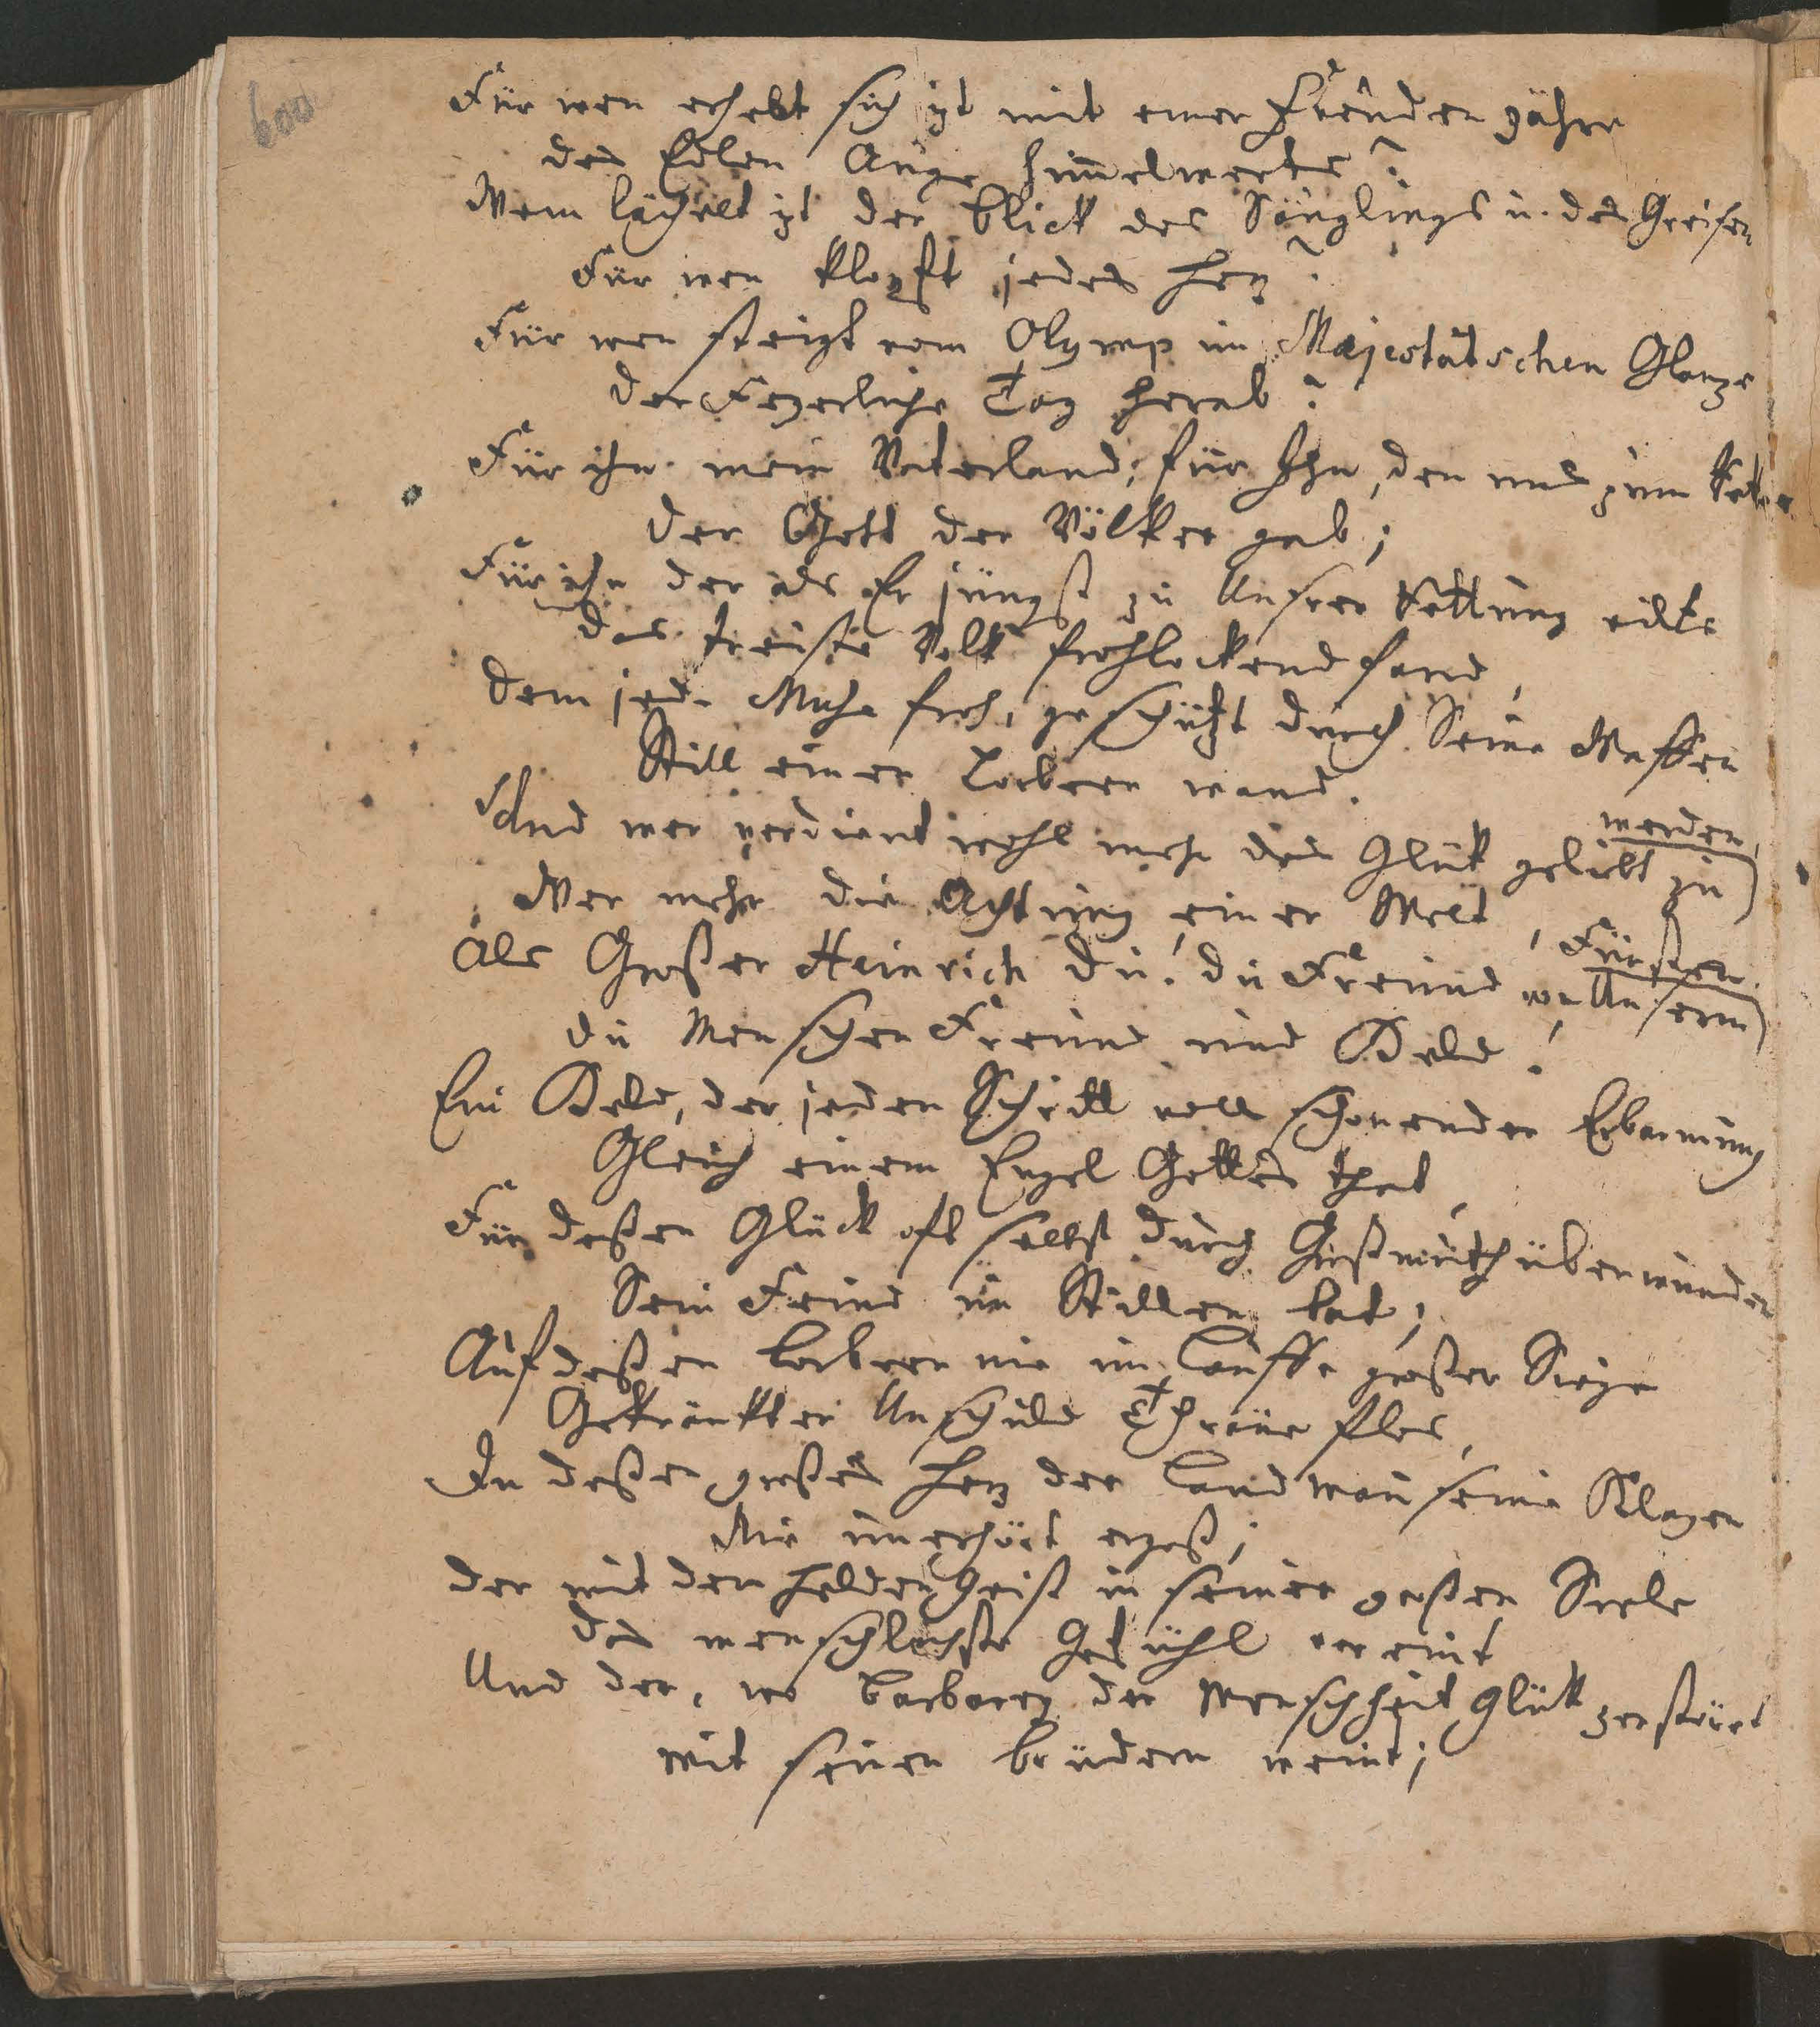 600
Für wen erhebt sich izt mit einer Freuden zähre
des Edlen Auge himelwerts?
Wem lächelt izt der Blick des Säuglings u. des Greisen
Für wen klopft jedes Herz?
Für wen steigt vom Olymp im Majestätschen Glanze
der Feyerliche Tag herab?
Für ihn mein Vaterland; für Ihn, den uns zum
der Gott der Völker gab;
Für ihn der als Er jüngst zu Unsrer Rettung eilte
das treuste Volk frohlockend fand,
dem jede Muse froh, geschüzt durch Seine Waffen
Still einen Lorbeer wand.
Und wer verdient wohl mehr das Glük geliebt zu werden,
Wer mehr die Achtung einer Welt,
Als Großer Heinrich du! du Freund von Unserm Fürsten
du Menschen Freund und Held!
Ein Held, der jeden Schritt voll schonender Erbarmung
Gleich einem Engel Gottes that,
Für deßen Glück oft selbst durch Großmuth überwunden
Sein Feind im Stillen bat;
Auf deßen Lorbeern nie im Lauffe großer Siege
Gekränkter Unschuld Thräne flos,
In deßen großes Herz der Landman seine Klagen
Nie unerhört ergoß;
der mit dem Helden Geist in seiner großen Seele
das menschlichste Gefühl vereint
Und der, wo Barbarey der Menschheit Glük zerstöret
mit seinen Brüdern weint;